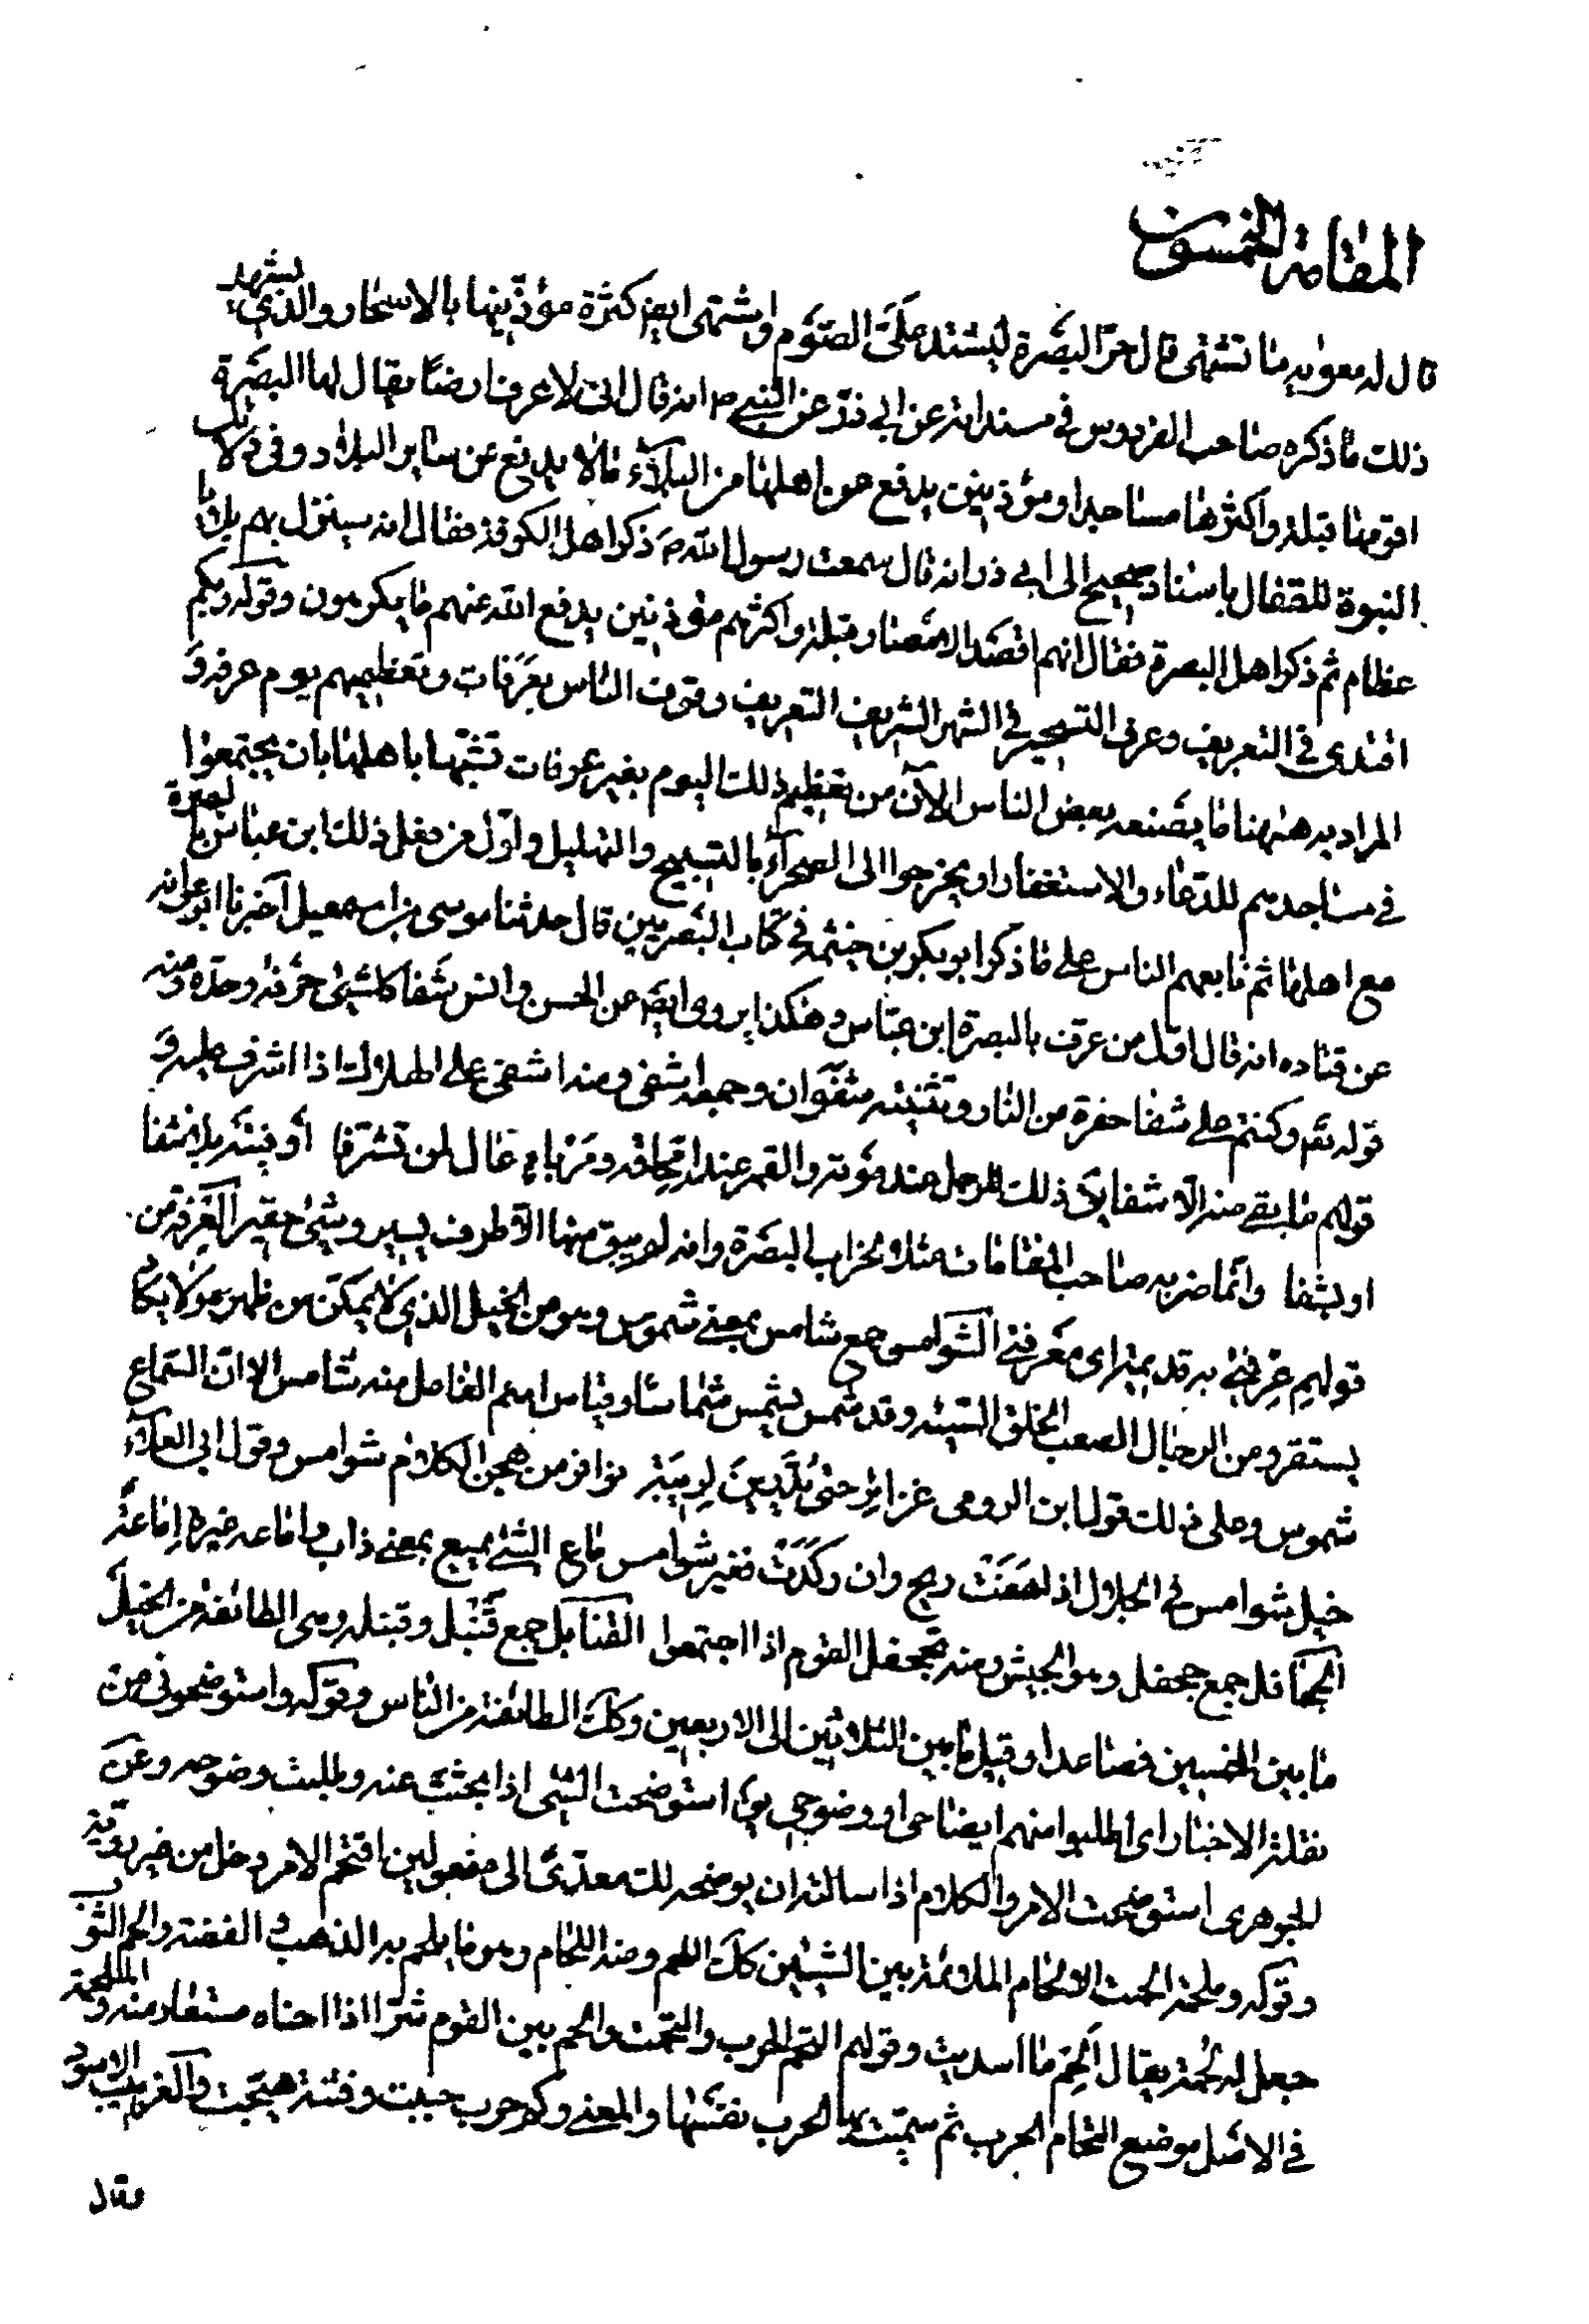 المقامة الخمسون
قال له معويه ما تشتهى قال حرّ البصرة ليشتد علىّ الصوم واشتهى ايض كثرة مؤذّنيها بالاسحار والذي يشهد
ذلك ما ذكره صاحب الفردوس فى مسنداته عن ابى ذرّ عن النبى ص انه قال انى لاعرف ارضًا يقال لها البصرة
اقومها قبلة واكثرها مساجدا ومؤذنين يدفع عن اهلها من البلآء مالا يدفع عن ساير البلاد وفى دلائل
النبوة للقفال باسناد صحيح الى ابى ذر انه قال سمعت رسول الله ص ذكر اهل الكوفة فقال انه سينزل بهم بلايا
عظام ثم ذكر اهل البصرة فقال انهم اقصد الامصار قبلة واكثرهم مؤذنين يدفع الله عنهم ما يكرهون وقوله وبكم
اقتدى فى التعريف وعرف التسحير فى الشهر الشريف التعريف وقوف الناس بعرفات وتعظيمهم يوم عرفه و
المراد به هٰهنا ما يصنعه بعض الناس الآن من تعظيم ذلك اليوم بغير عرفات تشبّها باهلها بان يجتمعوا
فى مساجدهم للدعاء والاستغفار او يخرجوا الى الصحرآء بالتسبيح والتهليل واوّل من فعل ذلك ابن عباس بالبصرة
مع اهلها ثم تابعهم الناس على ما ذكر ابو بكر بن خيثمه فى كتاب البصريين قال حدثنا موسى بن اسمعيل اخبرنا ابوعوانه
عن قتاده انه قال اول من عرف بالبصرة ابن عبّاس وهكذا يروى ايض عن الحسن وانس شفا كل شىٔ حرفه وحدّه ومنه
قوله تع وكنتم على شفا حفرة من النار وتثنيته شفوان وجمعه اشفى ومنه اشفى على الهلاك اذا اشرف عليه و
قولهم ما بقى منه الّا شفا يق ذلك للرجل عند موته والقمر عند امّحاقه ومربإ عال لمن تشرّفا أو فيته بلا شفا
او بشفا وانّما ضربه صاحب المقامات مثلا لخراب البصرة وانه لم يبق منها الّا طرف يسير وشىٔ حقير العِرفة من
قولهم عِرفتى به قديمة اى معرفتى الشوامس جمع شامس بمعنى شموس وهو من الخيل الذي لا يمكّن من ظهره ولا يكاد
يستقر ومن الرجال الصعب الخلق السيئه وقد شمس يشمس شماسًا وقياس اسم الفاعل منه شامس الا انّ السماع
شموس وعلى ذلك قول ابن الرومى نوافر من هجن الكلام شوامس وقول ابى العلآء
خيل شوامس فى الجلال اذ لهفت ريح وان ركدت فغير شوامس ماع الشىٔ يميع بمعنى ذاب واماعه غيره اماعة
الجحافل جمع جحفل وهو الجيش ومنه تجحفل القوم اذا اجتمعوا القنابل جمع قَنْبل وقنبله وهى الطائفة من الخيل
ما بين الخمسين فصاعدا وقيل ما بين الثلاثين الى الاربعين وكذلك الطائفة من الناس وقوله واستوضحونى من
نقلة الاخبار اى اطلبوا منهم ايضاحى او وضوحى يق استوضحت الشىٔ اذا بحثت عنه وطلبت وضوحه وعن
الجوهرى استوضحت الامر والكلام اذا سالته ان يوضحه لك معدّىً الى مفعولين اقتحم الامر دخل من غير رويّة
وقوله وملحمة الحمت الالحام الملائمة بين الشيئين كذلك اللحم ومنه اللحام وهو ما يلحم به الذهب او الفضة والحم الثوب
جعل له لحمة يقال الحم ما اسديت وقولهم التحم الحرب والتحمت والحم بين القوم شرّا اذا جناه مستعار منه والملحمة
فى الاصل موضع التحام الحرب ثم سمّيت بها الحرب نفسُها والمعنى وكم حرب حييت وفتنة هيّجت والغربيب الاسود
وقد